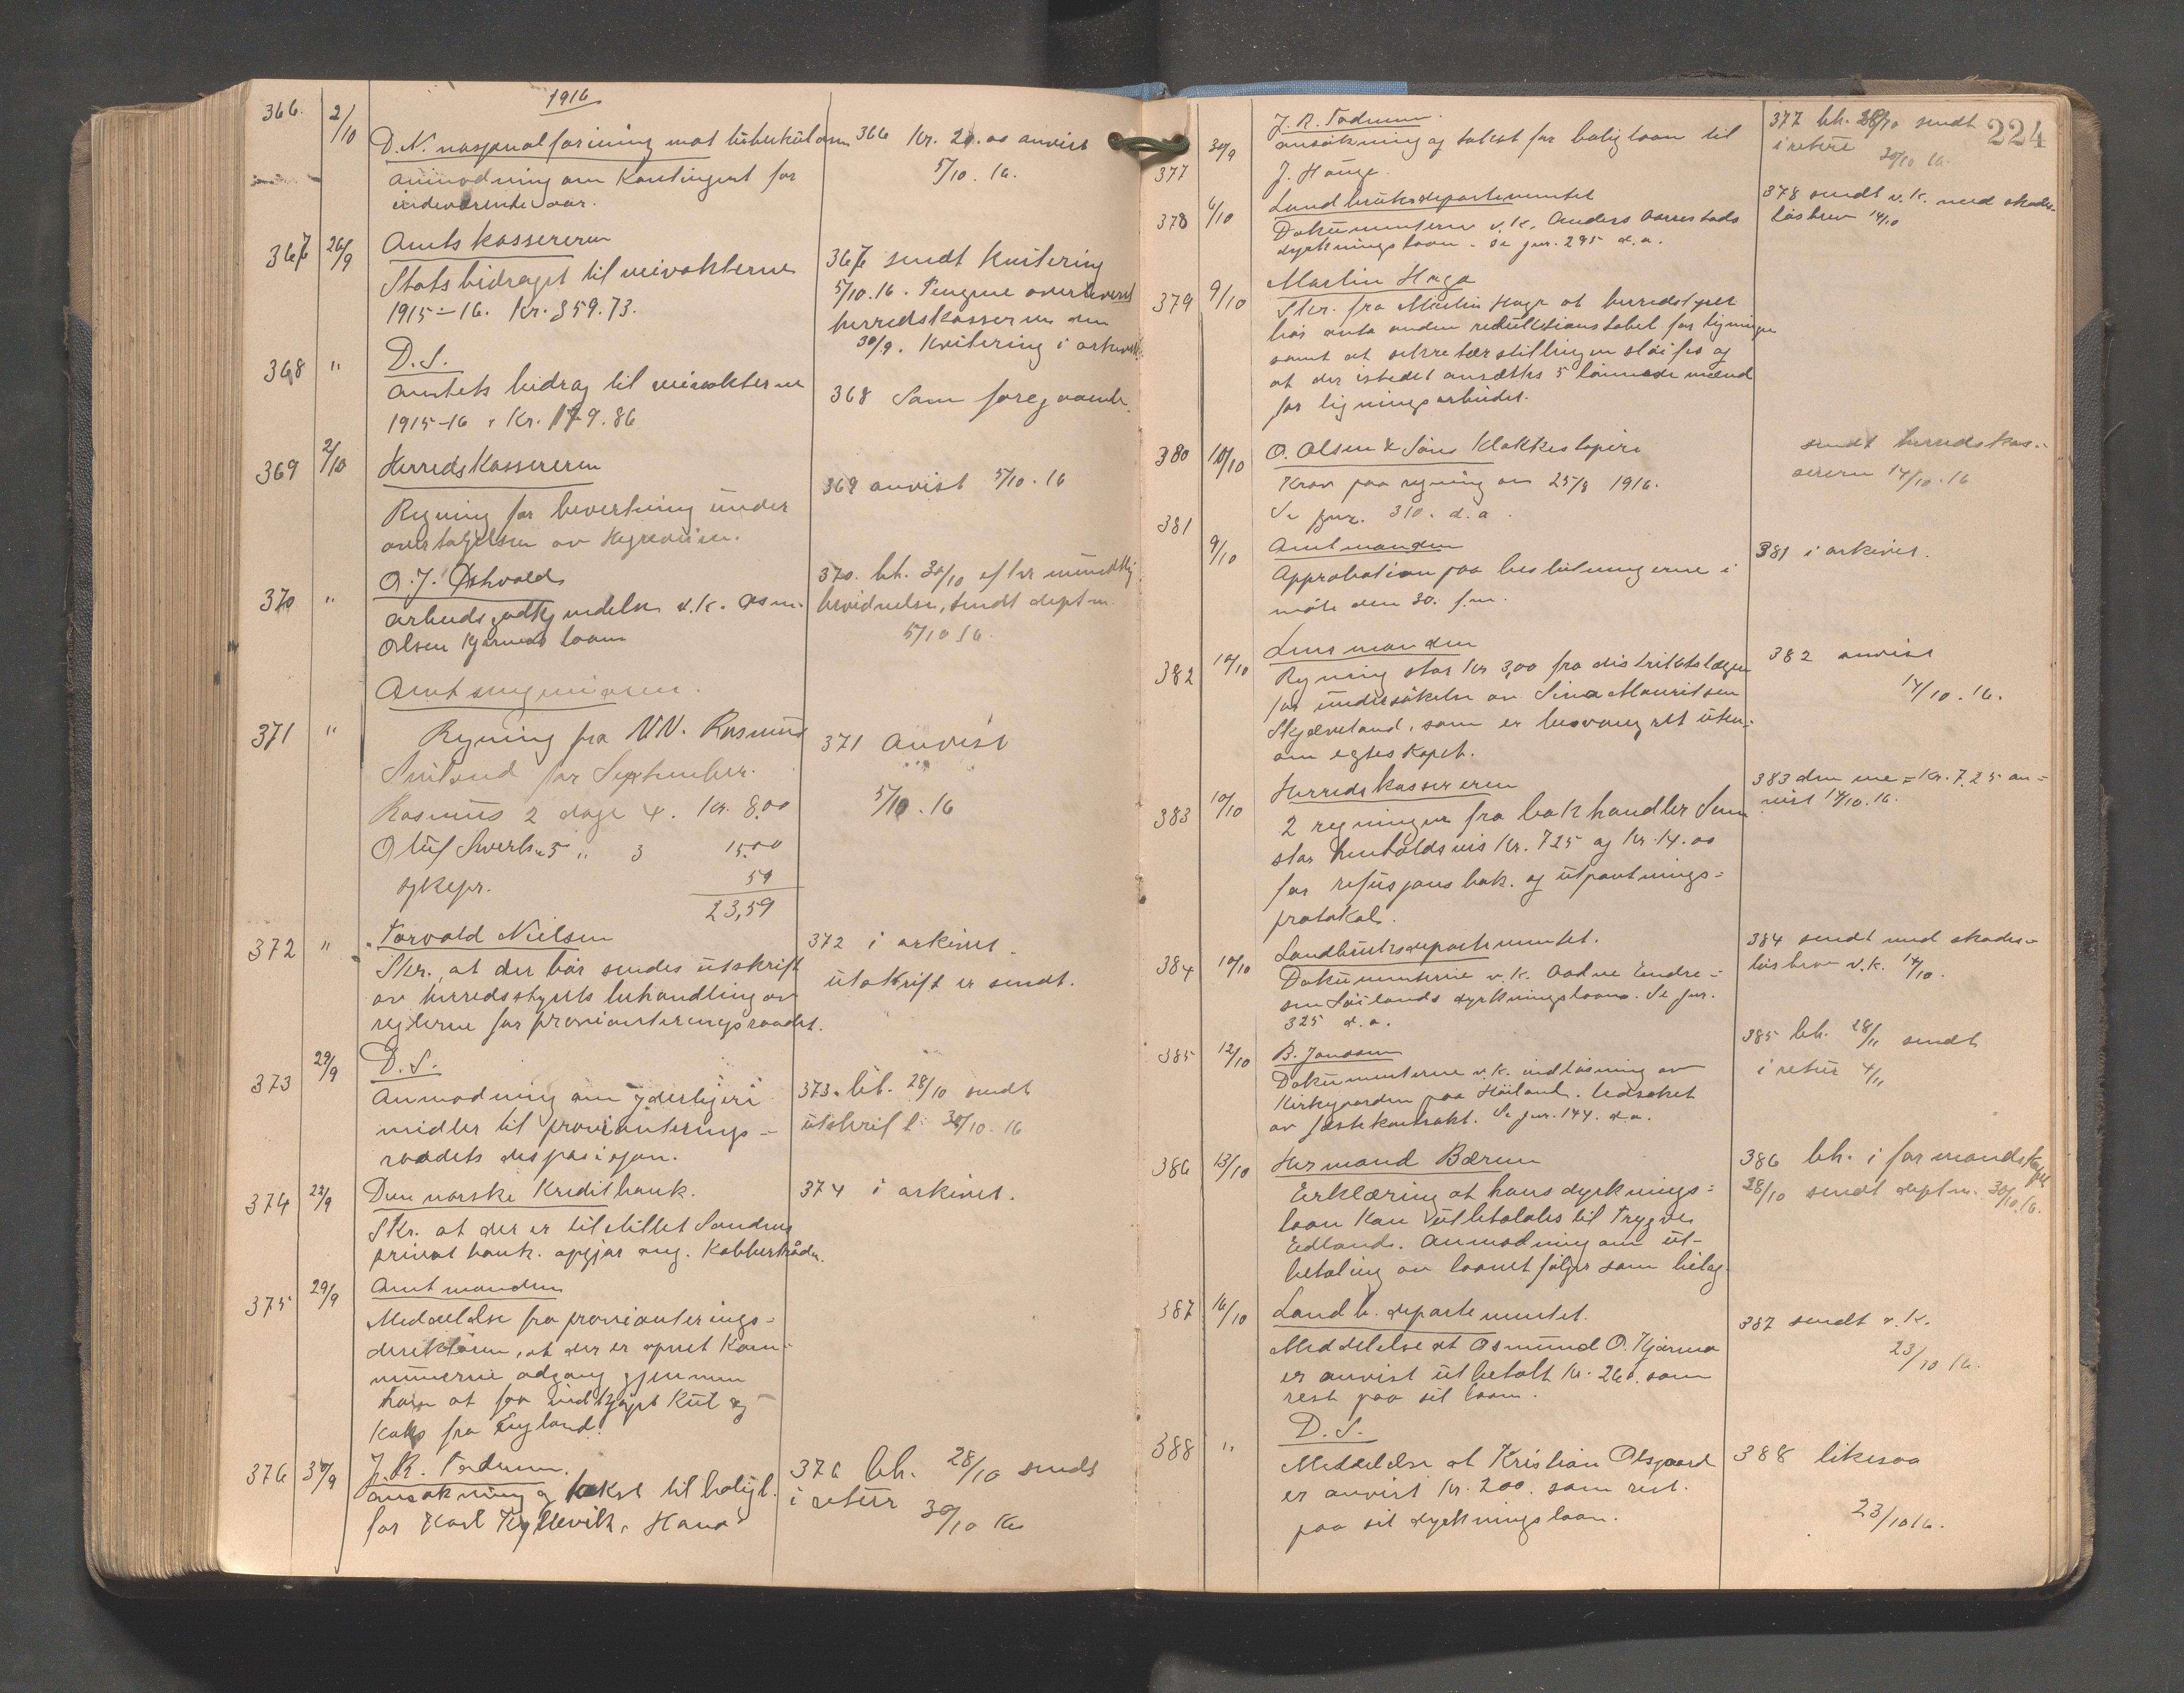 1916
366. 2/10 D. N. nasjonalforening mot tuberkulosen
anmodning om Kontingent for
indeværende aar.
366 Kr. 20.00 anvist
5/10. 16.
367 26/9 Amtskassereren
Statsbidraget til veivokterne
1915-16. Kr. 359.73.
367 sendt Kvitering
5/10.16. Pengene overleveret
herredskassereren den
30/9. Kvitering i arkivet.
368 " D. S.
Amtets bidrag til veivokterne
1915-16. Kr. 179.86
368 Som foregaaende.
369 2/10 Herredskassereren
Regning for bevertning under
overtagelsen av Hegreveien.
369 anvist 5/10. 16
370 " O. J. Østvold
arbeidsgodkjendelse v.k. Osm.
Olsen Kjærmas laan
370. bh. 30/10 efter mundtlig
bevidnelse, sendt dept.
5/10 16.
Amtsingeniøren.
371 " Regning fra N.N. Rasmus
Sviland for September.
Rasmus 2 dage 4. Kr. 8.00
Oluf Sverts. 5 " 3 15.00
sykepr. 59
23,59
371 anvist
5/10. 16
372 " Torvald Nielsen
Skr. at der bør sendes utskrift
av herredsstyrets behandling av
reglerne for provianteringsraadet.
372 i arkivet.
utskrift er sendt.
373 29/9 D. S.
Anmodning om yderligere
midler til provianterings-
raadets disposisjon.
373. bh. 28/10 sendt
utskrift 30/10. 16
374 22/9 Den norske Kreditbank.
Skr. at der er tilstillet Sandnes
privatbank. opgjør ang. Kobbertråden.
374 i arkivet.
375 29/9 Amtmanden
Meddelelse fra provianterings-
direktøren, at der er aapnet Kom-
munerne adgang gjennem
ham at faa indkjøpt Kul og
Koks fra England.
376 30/9 J. R. Todnem.
ansøkning og takst til boligl.
for Karl Kyllevik, Hana
376 bh. 28/10 sendt
i retur
30/10 16
224
377 30/9 J. R. Todnem.
ansøkning og takst for boliglaan til
J. Hauge.
377 bh. 28/10 sendt
i retur 30/10 16.
378 6/10 Landbruksdepartementet
Dokumenterne v.k. Anders Aarrestads
dyrkningslaan. Se jur. 295 d.a.
378 sendt v.k. med skades-
løsbrev 14/10
379 9/10 Martin Haga
Skr. fra Martin Haga at herredstyret
bør anta anden reduktionstabel for ligningen
samt at sekretærstillingen sløifes og
at der istedet ansættes 5 lønnede mænd
for ligningsarbeidet.
380 10/10 O. Olsen & Søns Klokkestøperi
Krav paa regning av 25/8 1916.
Se jur. 310. d.a.
sendt herredskas-
sereren 14/10. 16
381 9/10 Amtmanden
Approbation paa beslutningerne i
møte den 30. f.m.
381 i arkivet.
382 12/10 Lensmanden
Regning stor kr 3,00 fra distriktslægen
for undersøkelse av Sina Mauritsen
Skjæveland, som er besvangret uten-
om egteskapet.
382 anvist
14/10. 16.
383 10/10 Herredskassereren
2 regninger fra bokhandler Sem
stor henholdsvis Kr. 7.25 og Kr. 14.00
for refusjonsbok. og utpantnings-
protokol.
383 den ene = Kr. 7,25 an-
vist 14/10. 16.
384 10/10 Landbruksdepartementet.
Dokumenterne v.k. Aadne Endre-
sen Søilands dyrkningslaan. Se jur.
325 d.a.
384 sendt med skades-
løsbrev v.k. 14/10.
385 12/10 B. Janssen
Dokumenterne v.k. indløsning av
Kirkegaarden paa Høiland. ledsaket
av festekontrakt. Se jur. 144. d.a.
385 bh. 28/11 sendt
i retur 4/11
386 13/10 Hermand Bærem
Erklæring at hans dyrknings-
laan kan utbetales til Trygve
Eidland. Anmodning om ut-
betaling av laanet følger som bilag
386 bh. i formandskapet
28/10 sendt dept. 30/10.16.
387 16/10 Landb. departementet.
Meddelelse at Osmund O. Kjærma
er anvist utbetalt Kr. 260. som
rest paa sit laan.
387 sendt v.k.
23/10 16.
388 " D. S.
Meddelelse at Kristian Olsgaard
er anvist kr. 200. som rest.
paa sit dyrkningslaan.
388 likesaa
23/10 16.